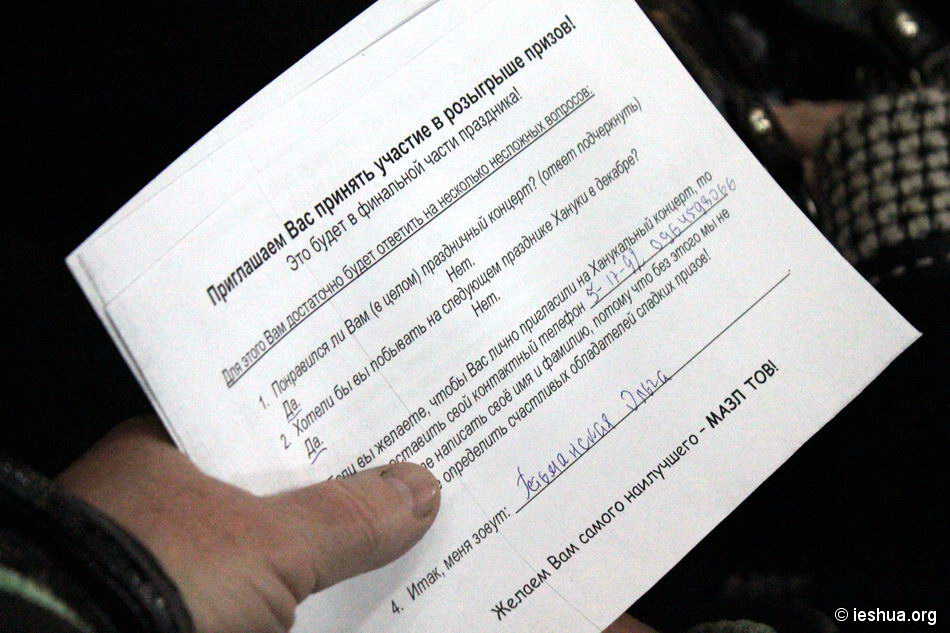 Приглашаем Вас принять участие в розыгрыше призов!
Это будет в финальной части праздника!
Для этого Вам достаточно будет ответить на несколько несложных вопросов:
1. Понравился ли Вам (в целом) праздничный концерт? (ответ подчеркнуть)
Да. Нет.
2. Хотели бы вы побывать на следующем празднике Хануки в декабре?
Да. Нет.
вы желаете, чтобы Вас лично пригласили на Ханукальный концерт, то
оставить свой контактный телефон 5-17-91, 0964598066
написать своё имя и фамилию, потому что без этого мы не
определить счастливых обладателей сладких призов!
4. Итак, меня зовут: Ольга
Желаем Вам самого наилучшего - МАЗЛ ТОВ!
© ieshua.org